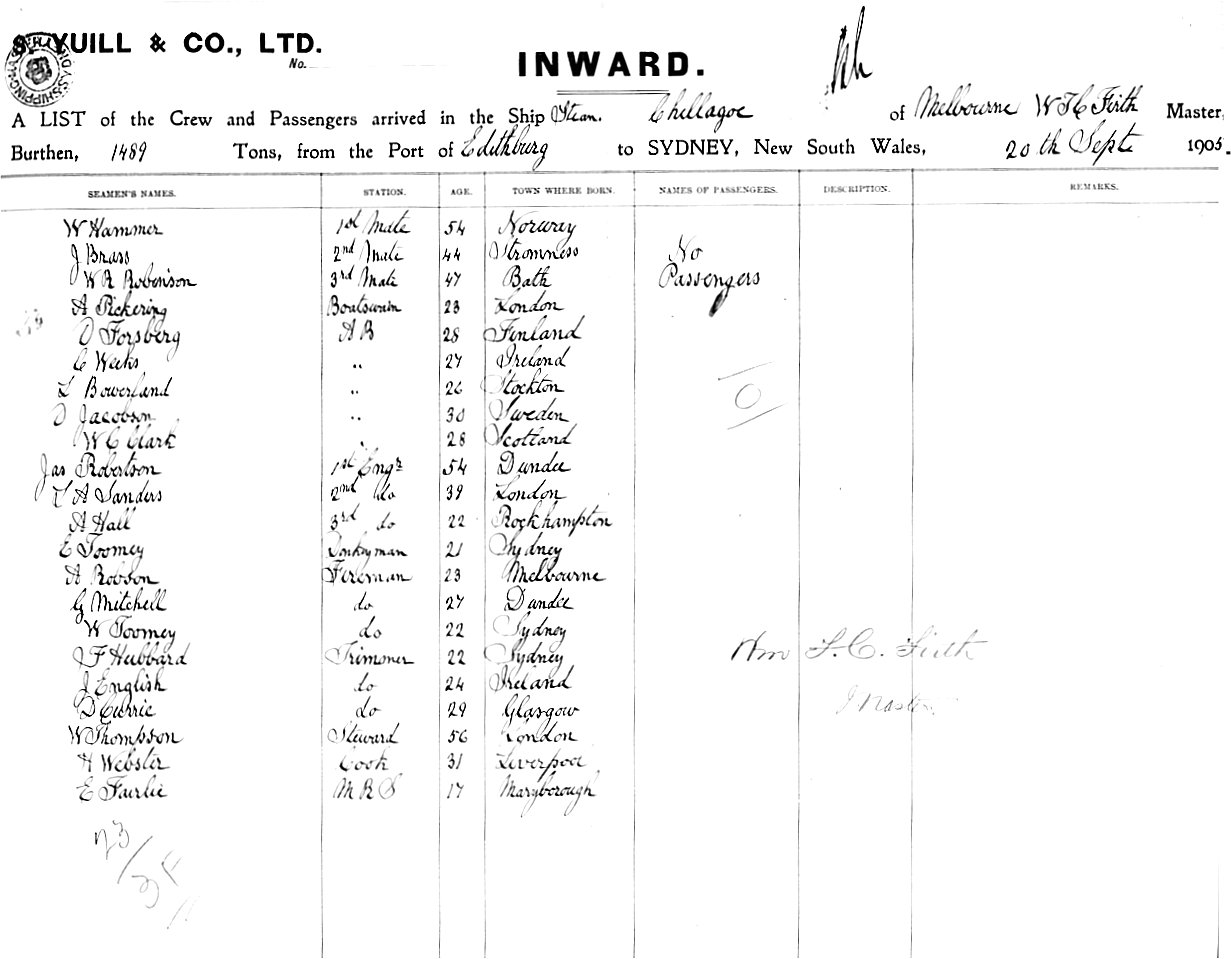 S. YUILL & CO., LTD.
No.
INWARD.
A LIST of the Crew and Passengers arrived in the Ship Steam. Chillagoe of Melbourne W T C Firth Master,
Burthen, 1489 Tons, from the Port of Edithburg to SYDNEY, New South Wales, 20th Sept 1905.
SEAMEN'S NAMES. STATION. AGE. TOWN WHERE BORN. NAMES OF PASSENGERS. DESCRIPTION. REMARKS.
W Hammer 1st Mate 54 Norwey
J Brass 2nd Mate 44 Stromness No
W R Robinson 3rd Mate 47 Bath Passengers
A Pickering Boatswain 23 London
D Forsberg A B 28 Finland
C Weeks " 27 Ireland
L Bowerland " 26 Stockton
D Jacobson " 30 Sweden
W C Clark " 28 Scotland
Jas Robertson 1st Engr 54 Dundee
T A Sanders 2nd do 39 London
A Hall 3rd do 22 Rockhampton
E Toomey Donkeyman 21 Sydney
A Robson Fireman 23 Melbourne
G Mitchell do 27 Dundee
W Toomey do 22 Sydney
J F Hubbard Trimmer 22 Sydney
Wm T. C. Firth
J English do 24 Ireland
D Currie do 29 Glasgow
Master
W Thompson Steward 56 London
H Webster Cook 31 Liverpool
E Fairlie M R S 17 Maryborough
23